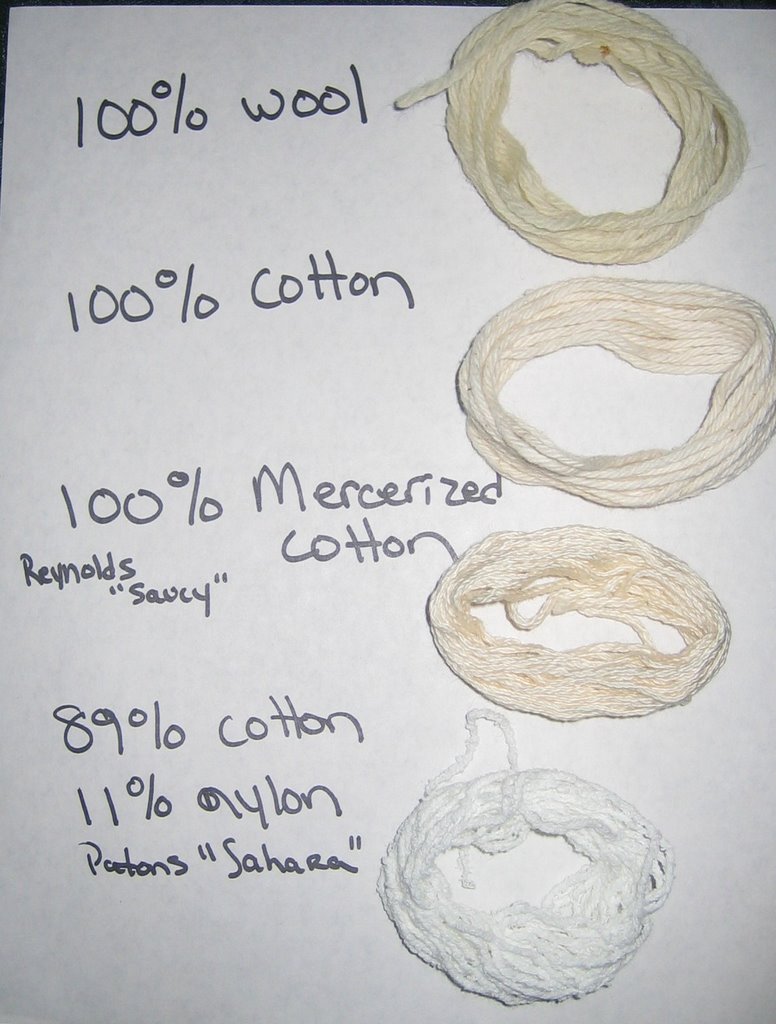 100% wool
100% cotton
100% Mercerized
cotton
Reynolds
"Saucy"
89% cotton
11% nylon
Patons "Sahara"